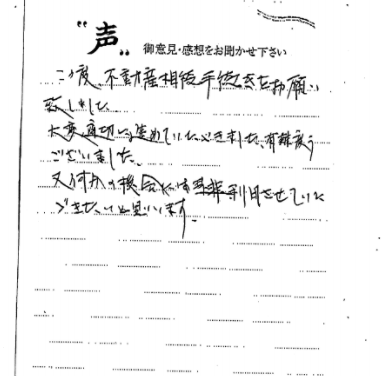 “声”
御意見・感想をお聞かせ下さい
この度、不動産相続手続きをお願い
致しました。
大変適切に進めていただきました。有難う
ございました。
又何かの機会には是非利用させていた
だきたいと思います。